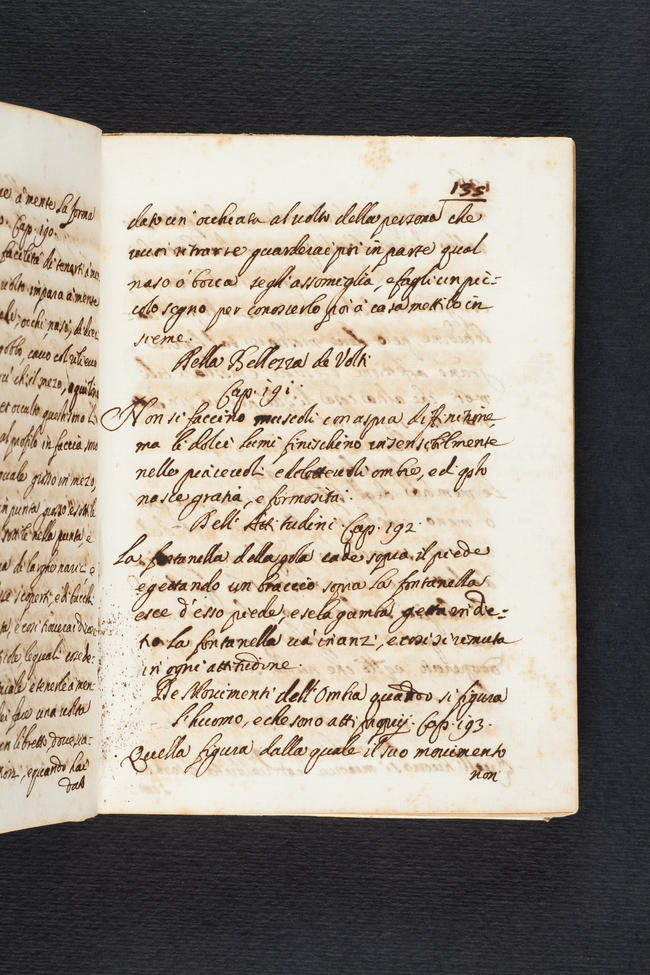 ue a mente la forma
o. Cap. 190.
facilità di tenerti a men
volto impara a mente
occhi, nasi,
gobbo, cavo col
ch'il mezo, aquilino
et occulto
al profilo in faccia, sono
quale grosso in mezo,
in punta grosso e sottile
sottile nella punta, e
di larghe narici e
scoperti, e di
e così troverai
lequali
quale e tenerle a men
fare una volta
un libretto dove
quando hai
dato
135
dato un'occhiata al volto della persona che
vuoi ritrarre guarderai poi in parte qual
naso ò bocca segl'assomiglia, e fagli un pic-
colo segno per conoscerlo poi à casa mettilo in
sieme.
Della Bellezza de Volti
Cap. 191.
Non si faccino muscoli con aspra difinitione,
ma li dolci lumi finischino insensibilmente
nelle piacevoli e dilettevoli ombre, e di q.to
nasce gratia, e formosità.
Dell'Attitudini Cap. 192.
La fontanella della gola cade sopra il piede
e gettando un braccio sopra la fontanella
esce d'esso piede, e se la gamba getta in die-
tro la fontanella và inanzi, e così si remuta
in ogni attitudine.
De Movimenti dell'Ombra quando si figura
l'huomo, e che sono atti Cap. 193.
Quella figura dalla quale il suo movimento
non